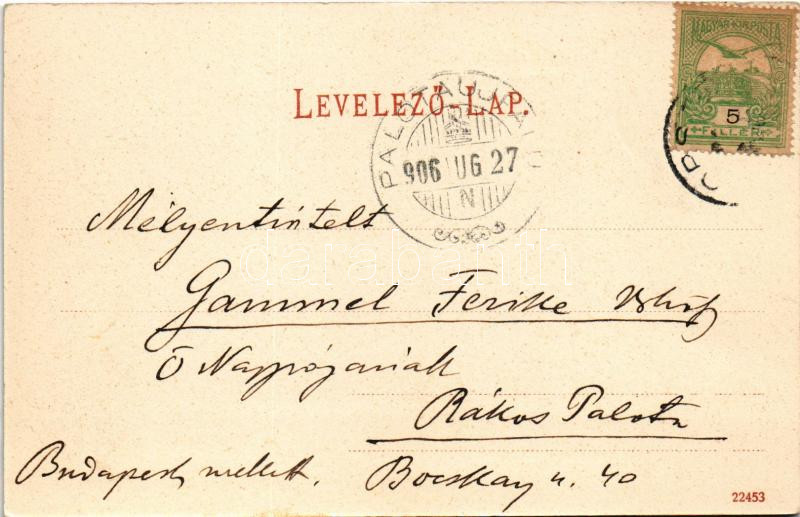 MAGYAR KIR. POSTA
5
FILLÉR
LEVELEZŐ-LAP.
PALOTAUJFALU
906 UG 27
N
ORS
darabanth
Mélyentisztelt
Gammel Ferike
Ő Nagyságának
Rákos Palota
Budapest mellett.
Bocskay u. 40
22453